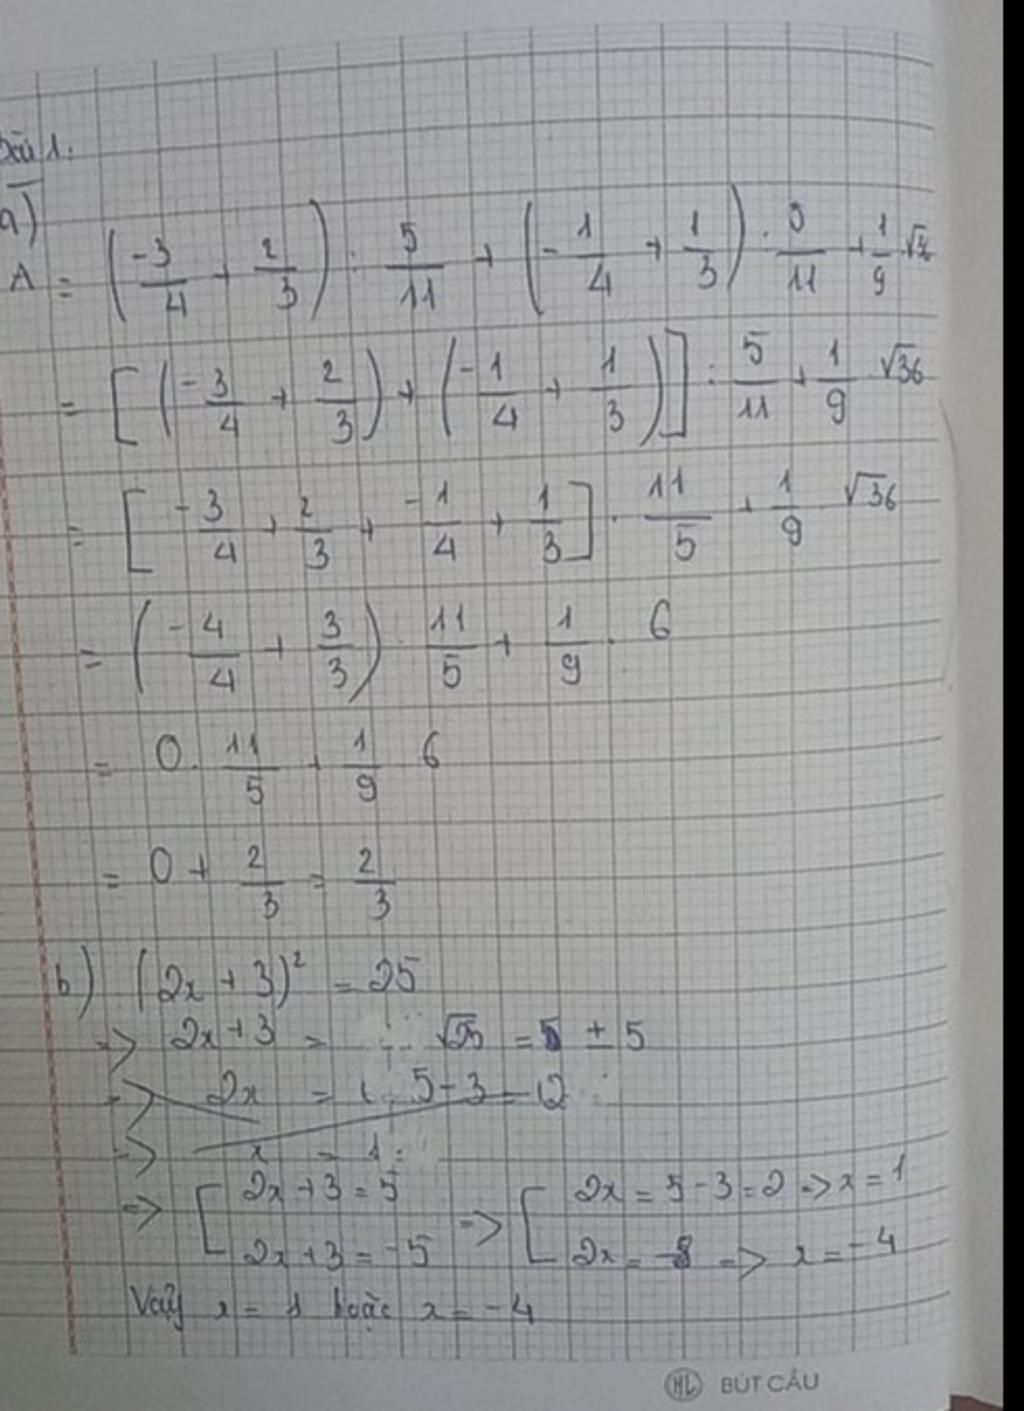 Bài 1.
a)
A = (-3/4 + 2/3) : 5/11 + (-1/4 + 1/3) : 5/11 + 1/9 . √36
= [(-3/4 + 2/3) + (-1/4 + 1/3)] : 5/11 + 1/9 √36
= [-3/4 + 2/3 + -1/4 + 1/3] . 11/5 + 1/9 √36
= (-4/4 + 3/3) . 11/5 + 1/9 . 6
= 0 . 11/5 + 1/9 6
= 0 + 2/3 = 2/3
b) (2x + 3)² = 25
=> 2x + 3 = √25 = ± 5
=> 2x = 5 - 3 = 2
=> x = 1
=> [ 2x + 3 = 5 => [ 2x = 5 - 3 = 2 => x = 1
2x + 3 = -5 2x = -8 => x = -4
Vậy x = 1 hoặc x = -4
ML BÚT CẦU